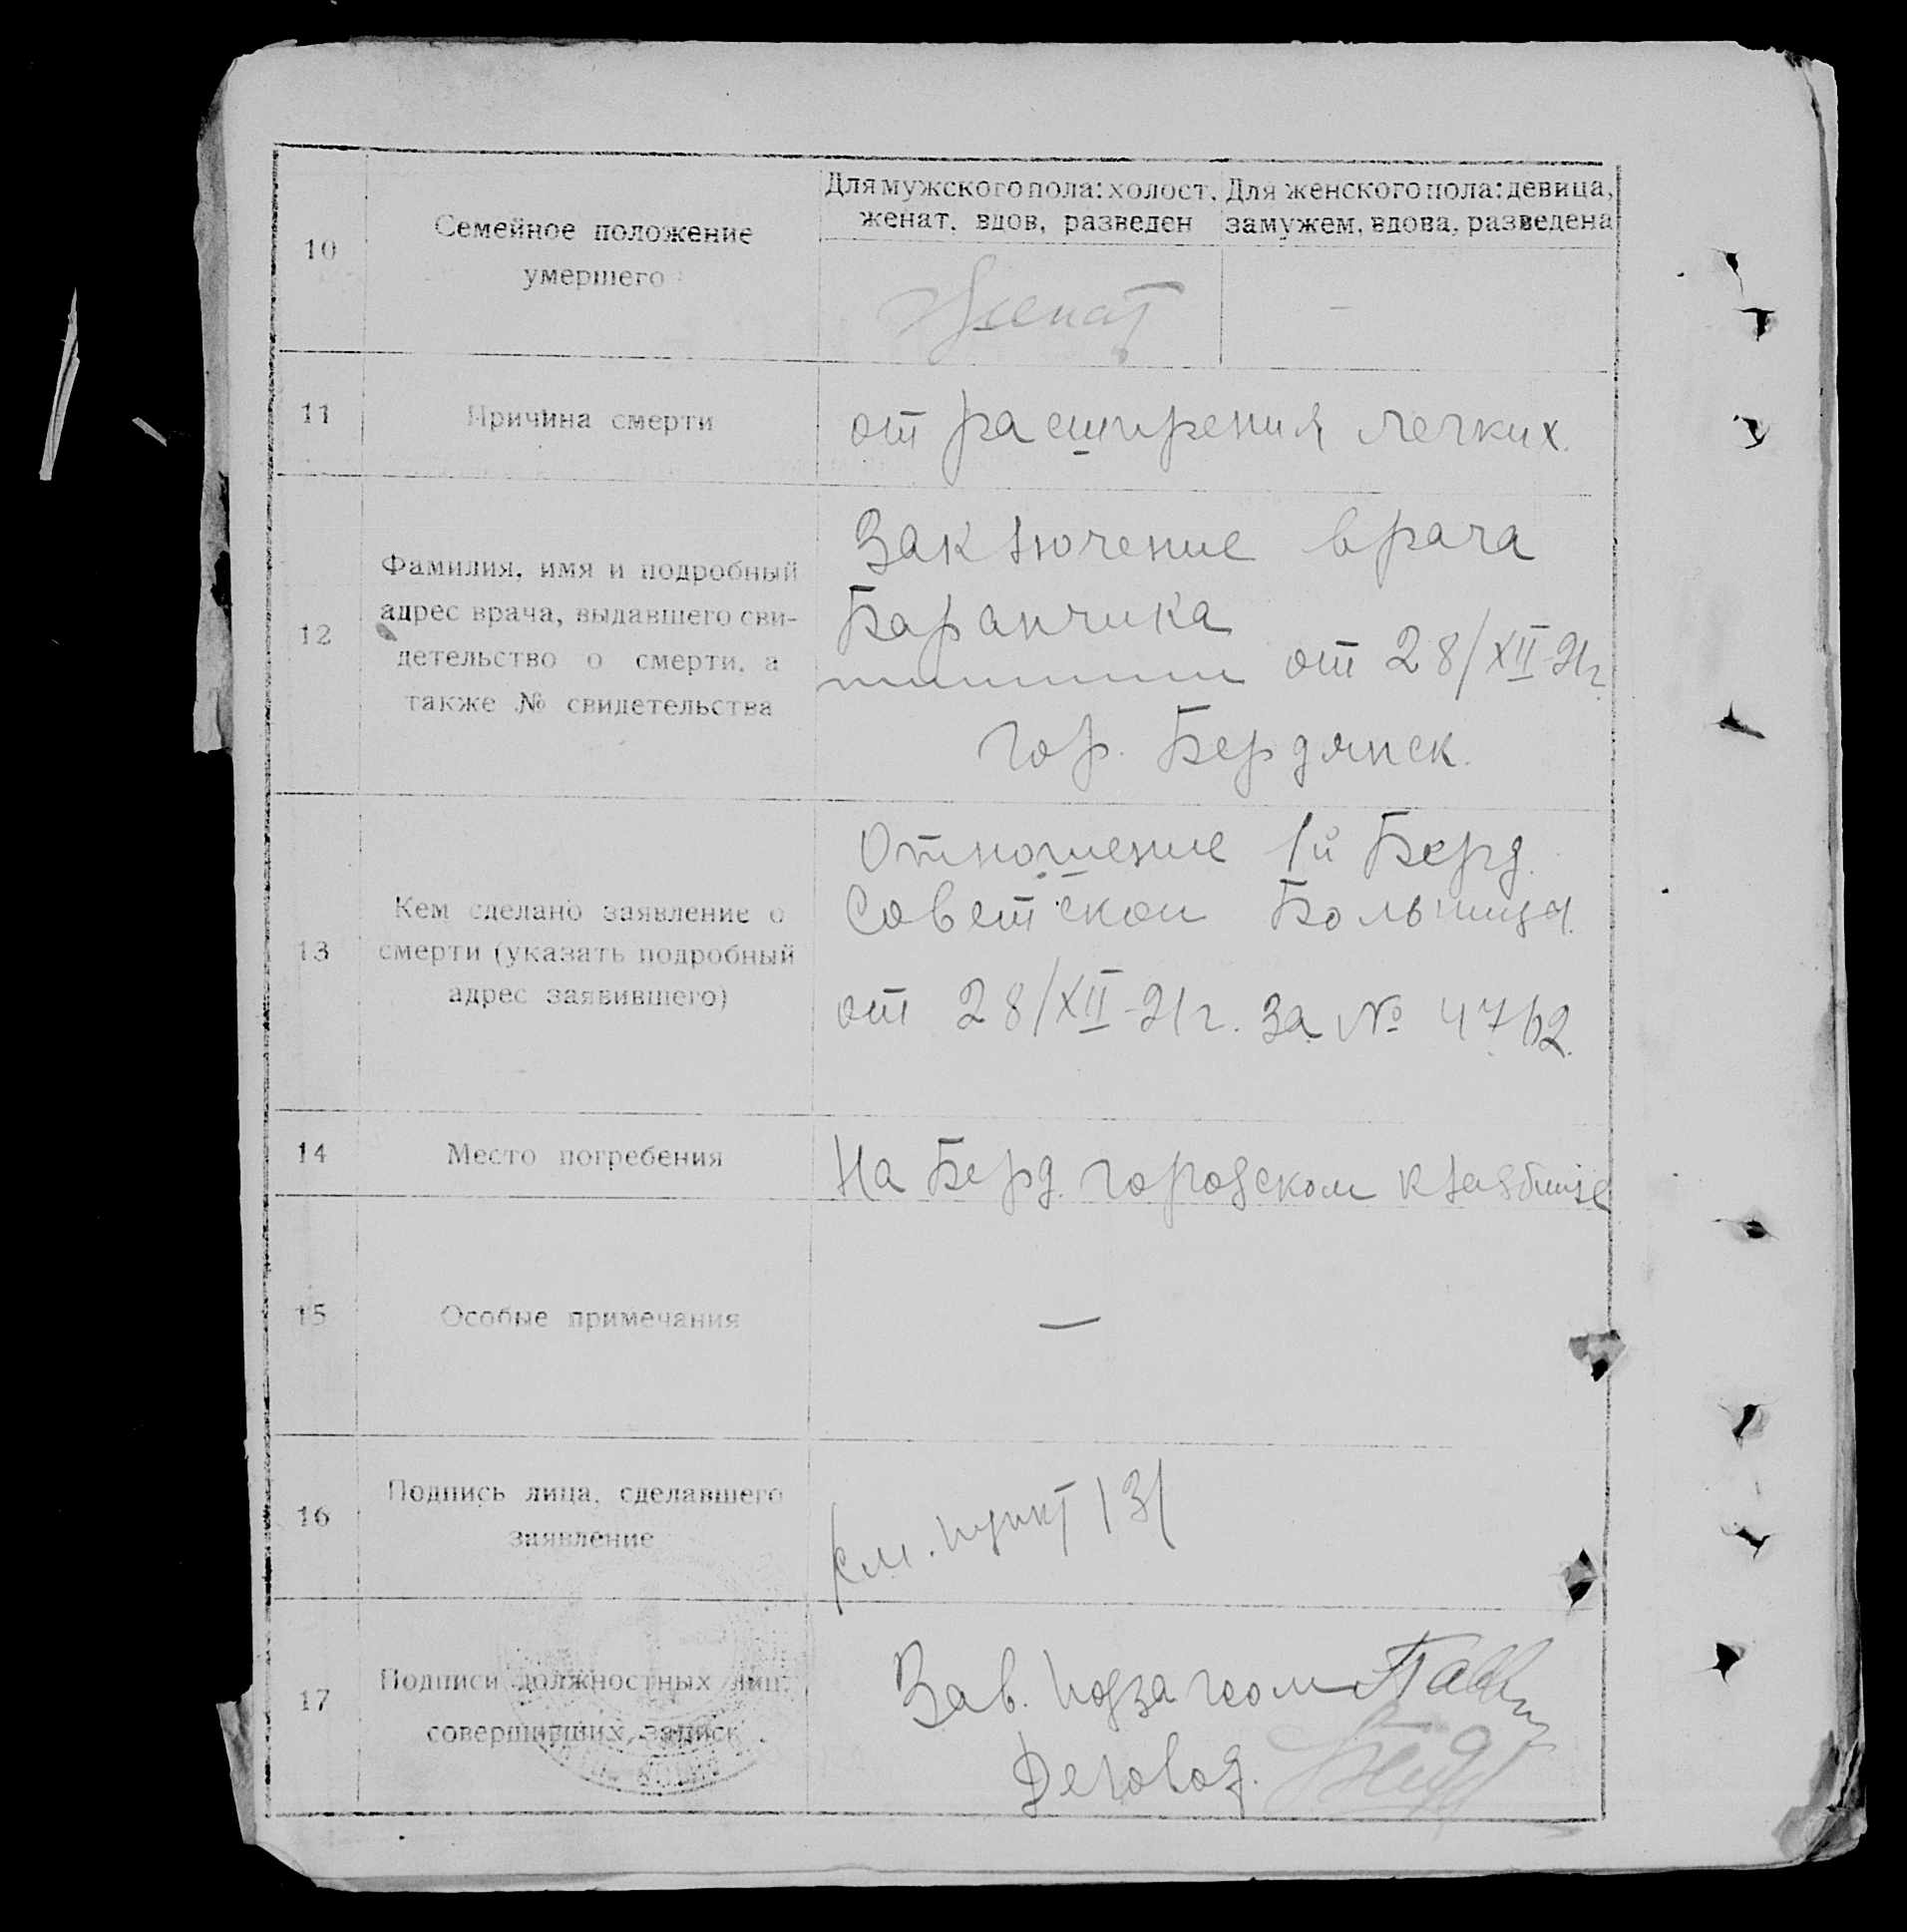 10
Семейное положение
умершего
Для мужского пола: холост,
женат, вдов, разведен
Для женского пола: девица,
замужем, вдова, разведена
Женат
—
11
Причина смерти
от расширения легких.
12
Фамилия, имя и подробный
адрес врача, выдавшего сви-
детельство о смерти, а
также № свидетельства
Заключение врача
Баранчика
от 28/XII-21г.
гор. Бердянск.
13
Кем сделано заявление о
смерти (указать подробный
адрес заявившего)
Отношение 1й Берд.
Советской Больницы.
от 28/XII-21г. за № 4762.
14
Место погребения
На Берд. городском кладбище
15
Особые примечания
—
16
Подпись лица, сделавшего
заявление
см. пункт 13/
17
Подписи должностных лиц,
совершивших запись.
Зав. подзагсом
Деловод.